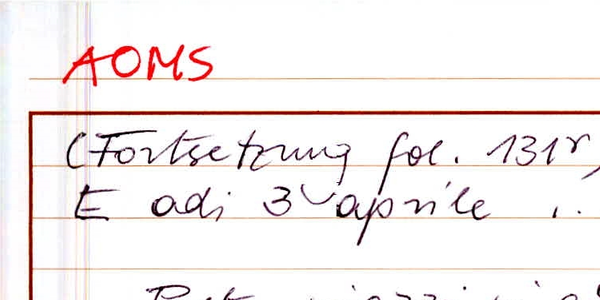 AOMS
(Fortsetzung fol. 131r)
E adi 3 aprile ..